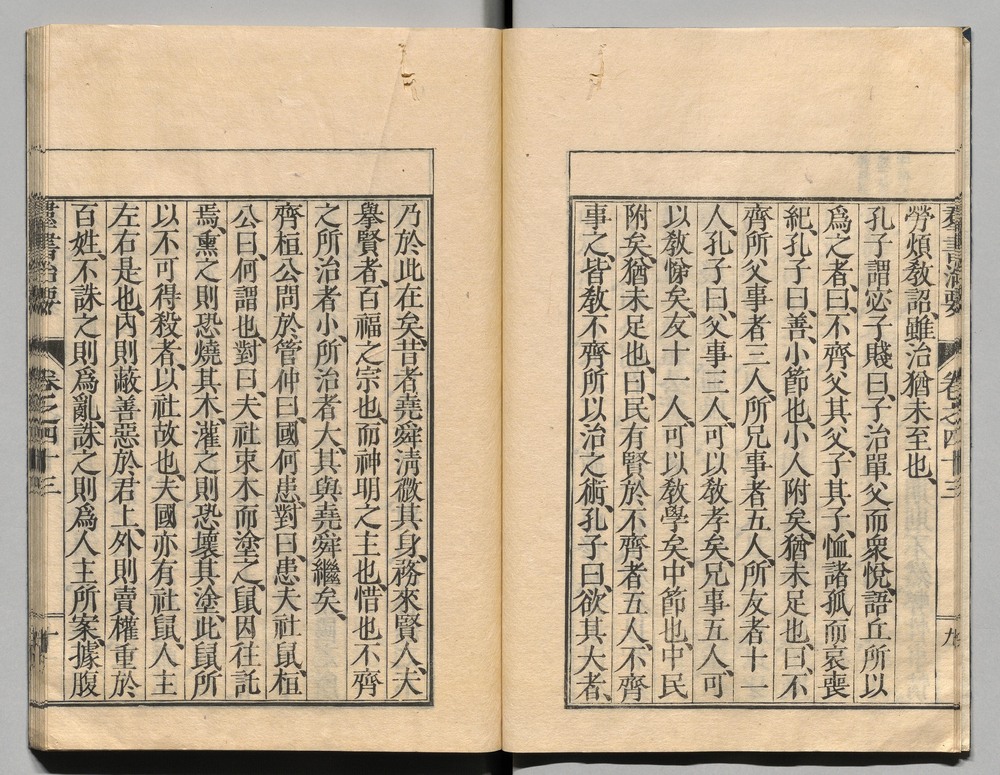 羣書治要 卷之四十三 九
勞煩敎詔、雖治猶未至也、
孔子謂宓子賤曰、子治單父而衆悅、語丘所以
爲之者、曰、不齊父其父、子其子、恤諸孤而哀喪
紀、孔子曰、善、小節也、小人附矣、猶未足也、曰、不
齊所父事者三人、所兄事者五人、所友者十一
人、孔子曰、父事三人、可以敎孝矣、兄事五人、可
以敎悌矣、友十一人、可以敎學矣、中節也、中民
附矣、猶未足也、曰、民有賢於不齊者五人、不齊
事之、皆敎不齊所以治之術、孔子曰、欲其大者、
乃於此在矣、昔者堯舜淸微其身、務來賢人、夫
擧賢者、百福之宗也、而神明之主也、惜也不齊
之所治者小、所治者大、其與堯舜繼矣、
齊桓公問於管仲曰、國何患、對曰、患夫社鼠、桓
公曰、何謂也、對曰、夫社束木而塗之、鼠因往託
焉、熏之則恐燒其木、灌之則恐壞其塗、此鼠所
以不可得殺者、以社故也、夫國亦有社鼠、人主
左右是也、內則蔽善惡於君上、外則賣權重於
百姓、不誅之則爲亂、誅之則爲人主所案、據腹
羣書治要 卷之四十三